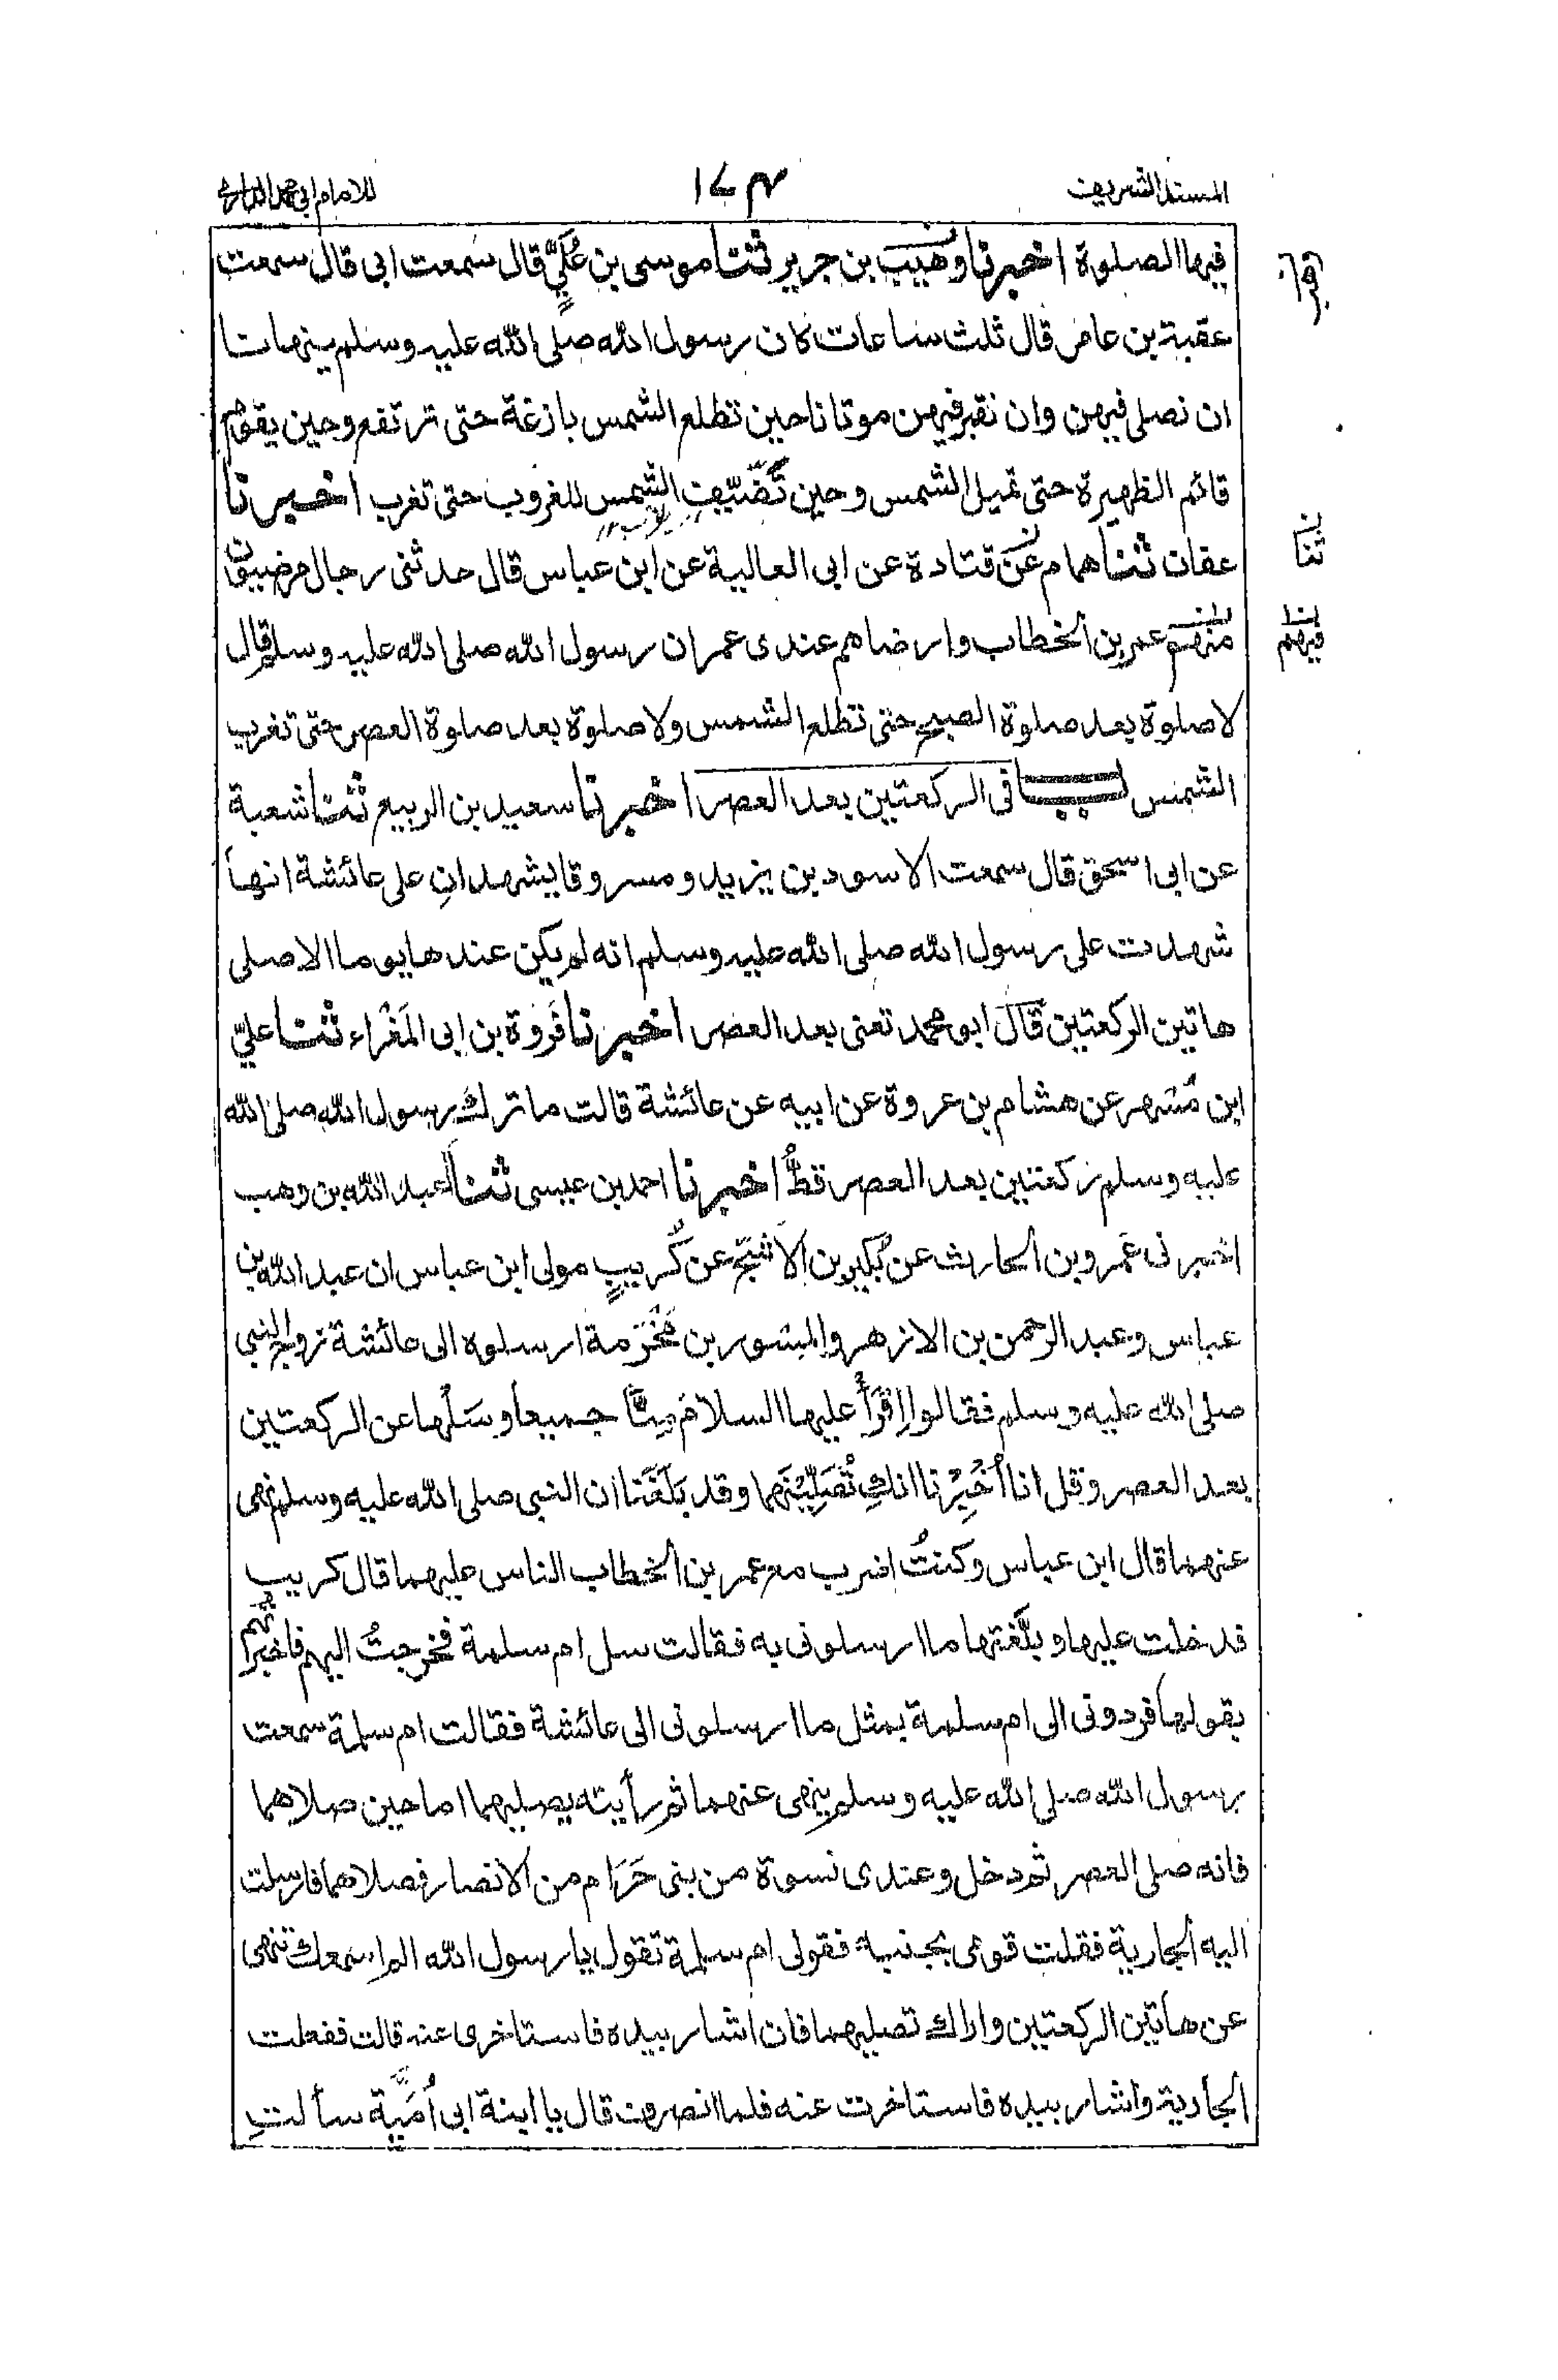 المسند الشريف ١٧٤ للامام ابی محمد الدارمی
فيها الصلوة اخبرنا وهيب بن جرير ثنا موسى بن عُلَيٍّ قال سمعت ابی قال سمعت
عقبة بن عامر قال ثلث ساعات كان رسول الله صلى الله عليه وسلم ينهانا
ان نصلی فيهن وان نقبر فيهن موتانا حين تطلع الشمس بازغة حتى ترتفع وحين يقوم
قائم الظهيرة حتى تميل الشمس وحين تَضَيَّفُ الشمس للغروب حتى تغرب اخبرنا
عفان ثنا همام عن قتادة عن ابی العالية عن ابن عباس قال حدثنی رجال مرضيون
منهم عمر بن الخطاب وارضاهم عندی عمر ان رسول الله صلى الله عليه وسلم قال
لا صلوة بعد صلوة الصبح حتى تطلع الشمس ولا صلوة بعد صلوة العصر حتى تغرب
الشمس باب فی الركعتين بعد العصر اخبرنا سعيد بن الربيع ثنا شعبة
عن ابی اسحق قال سمعت الاسود بن يزيد ومسروقا يشهدانِ على عائشة انها
شهدت على رسول الله صلى الله عليه وسلم انه لم يكن عندها يوما الا صلى
هاتين الركعتين قال ابو محمد تعنى بعد العصر اخبرنا فَروة بن ابی المَغْراء ثنا علیّ
ابن مُسْهر عن هشام بن عروة عن ابيه عن عائشة قالت ما ترك رسول الله صلى الله
عليه وسلم ركعتين بعد العصر قطُّ اخبرنا احمد بن عيسى ثنا عبد الله بن وهب
اخبرنی عَمرو بن الحارث عن بُكير بن الاشجّ عن كُريبٍ مولى ابن عباس ان عبد الله بن
عباس وعبد الرحمن بن الازهر والمِسْور بن مَخْرَمة ارسلوه الى عائشة زوج النبی
صلى الله عليه وسلم فقالوا اِقْرَأْ عليها السلامَ مِنَّا جميعاً وسَلْها عن الركعتين
بعد العصر وقل انا اُخْبِرْنا انكِ تُصَلِّيْنَهما وقد بَلَغَنا ان النبی صلى الله عليه وسلم نهى
عنهما قال ابن عباس وكنتُ اضرب مع عمر بن الخطاب الناس عليهما قال كريب
فدخلت عليها وبلّغتها ما ارسلونی به فقالت سل ام سلمة فخرجتُ اليهم فاخبرتهم
بقولها فردونی الى ام سلمة بمثل ما ارسلونی الى عائشة فقالت ام سلمة سمعت
رسول الله صلى الله عليه وسلم ينهى عنهما ثم رأيته يصليهما اما حين صلاهما
فانه صلى العصر ثم دخل وعندی نسوة من بنی حَرَام من الانصار فصلاهما فارسلت
اليه الجارية فقلت قومی بجنبه فقولی ام سلمة تقول يا رسول الله الم اسمعك تنهى
عن هاتين الركعتين واراك تصليهما فان اشار بيده فاستاخری عنه قالت ففعلت
الجارية واشار بيده فاستاخرت عنه فلما انصرف قال يا ابنة ابی اُمَيَّة سألتِ
ثنا
فيهم